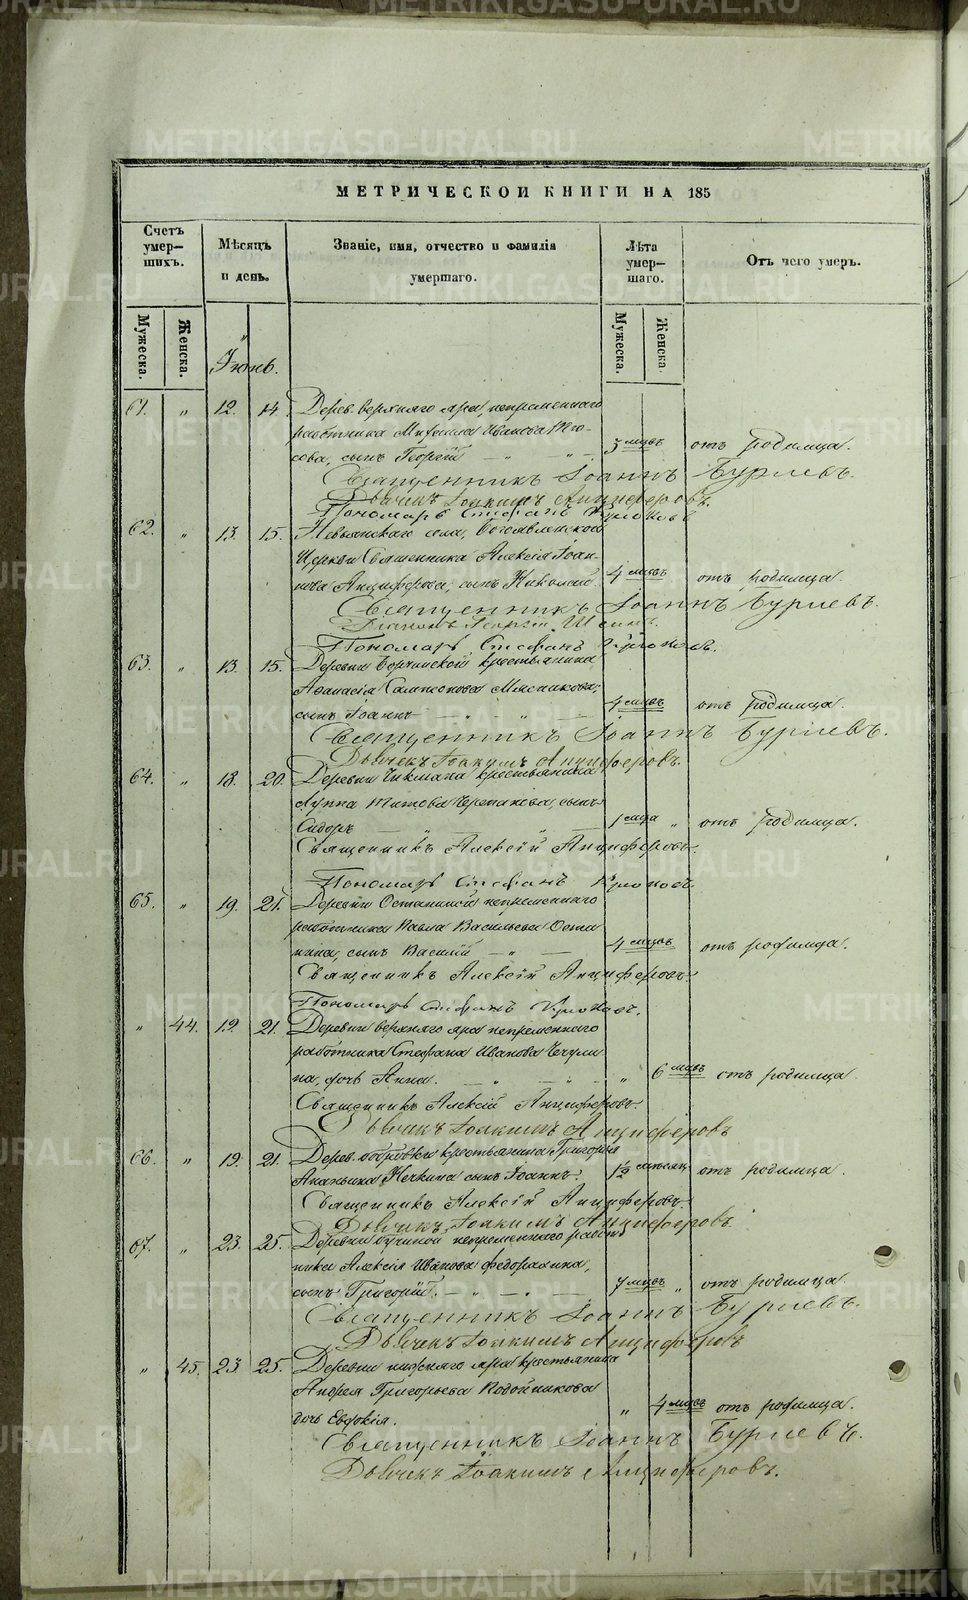 METRIKI.GASO-URAL.RU
МЕТРИЧЕСКОЙ КНИГИ НА 185
Счетъ умер-
шихъ.
Мѣсяцъ
и день.
Званіе, имя, отчество и фамилія
умершаго.
Лѣта
умер-
шаго.
Отъ чего умеръ.
Мужеска.
Женска.
Мужеска.
Женска
Іюнь.
61. " 12. 14. Дерев. верхняго яра, непременнаго
работника Михаила Иванова
сына Георгій 3 мцовъ отъ родимца.
Священникъ Іоаннъ Бурцевъ.
Дьячекъ Іоакимъ Анциферовъ.
Пономарь Стефанъ
62. " 13. 15. Невьянскаго села, Богоявленской
Церкви Священника Алексія Іоан-
нова Анциферова, сынъ Николай 4 мцовъ отъ родимца.
Священникъ Іоаннъ Бурцевъ.
Пономарь Стефанъ
63. " 13 15. Деревни крестьянина
Афанасія Сампсонова Мясникова,
сынъ Іоаннъ 4 мцовъ отъ родимца.
Священникъ Іоаннъ Бурцевъ.
Дьячекъ Іоакимъ Анциферовъ.
64. " 18. 20. Деревни крестьянина
Титова Черепанова, сынъ
Сидоръ 1 мца " отъ родимца.
Священникъ Алексій Анциферовъ.
Пономарь Стефанъ
65. " 19. 21. Деревни Останиной непременнаго
работника Павла Васильева Оста
нина, сынъ Василій 4 мцовъ отъ родимца.
Священникъ Алексій Анциферовъ.
Пономарь Стефанъ
" 44. 19. 21. Деревни верхняго яра непременнаго
работника Стефана Иванова Чечули
на, дочь Анна. " 6 мцовъ отъ родимца
Священникъ Алексій Анциферовъ.
Дьячекъ Іоакимъ Анциферовъ
66. " 19. 21. Дерев. крестьянина Григорія
Ананьина сынъ Іоаннъ. 1/2 месяц. отъ родимца.
Священникъ Алексій Анциферовъ.
Дьячекъ Іоакимъ Анциферовъ
67. " 23. 25. Деревни непременнаго работ
ника Алексія Иванова Федорахина,
сынъ Григорій. 7 мцовъ " отъ родимца
Священникъ Іоаннъ Бурцевъ.
Дьячекъ Іоакимъ Анциферовъ
" 45. 23. 25. Деревни нижняго яра крестьянина
Андрея Григорьева Подойникова
дочь Евдокія. " 4 мцовъ отъ родимца.
Священникъ Іоаннъ Бурцевъ.
Дьячекъ Іоакимъ Анциферовъ.